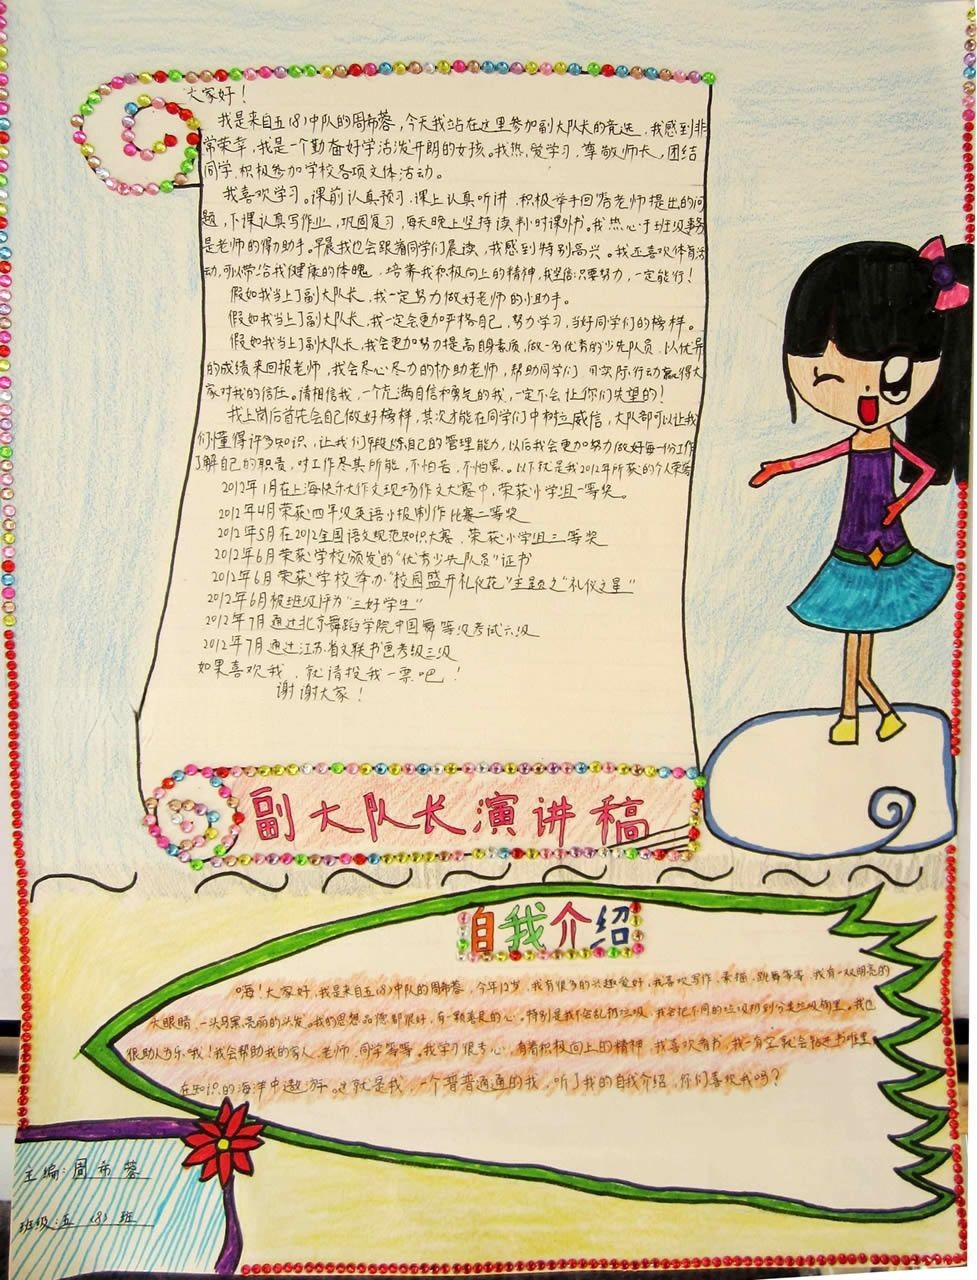 大家好！
我是来自五(8)中队的周布蓉，今天我站在这里参加副大队长的竞选，我感到非
常荣幸，我是一个勤奋好学活泼开朗的女孩。我热爱学习，尊敬师长，团结
同学，积极参加学校各项文体活动。
我喜欢学习。课前认真预习，课上认真听讲，积极举手回答老师提出的问
题，下课认真写作业，巩固复习，每天晚上坚持读半小时课外书。我热心于班级事务
是老师的得力助手。早晨我也会跟着同学们晨读，我感到特别高兴。我还喜欢体育活
动，可以带给我健康的体魄，培养我积极向上的精神，我坚信：只要努力，一定能行！
假如我当上了副大队长，我一定努力做好老师的小助手。
假如我当上了副大队长，我一定会更加严格自己，努力学习，当好同学们的榜样。
假如我当上了副大队长，我会更加努力提高自身素质，做一名优秀的少先队员，以优异
的成绩来回报老师，我会尽心尽力的协助老师，帮助同学们，用实际行动赢得大
家对我的信任。请相信我，一个充满自信和勇气的我，一定不会让你们失望的！
我上岗后首先会自己做好榜样，其次才能在同学们中树立威信，大队部可以让我
们懂得许多知识，让我们锻炼自己的管理能力，以后我会更加努力做好每一份工作
了解自己的职责，对工作尽其所能，不怕苦，不怕累。以下就是我2012年所获的个人荣誉
2012年1月在上海快乐大作文现场作文大赛中，荣获小学组一等奖。
2012年4月荣获四年级英语小报制作比赛二等奖
2012年5月在2012全国语文规范知识大赛，荣获小学组三等奖
2012年6月荣获学校颁发的“优秀少先队员”证书
2012年6月荣获学校举办“校园盛开礼仪花”主题之“礼仪之星”
2012年6月被班级评为“三好学生”
2012年7月通过北京舞蹈学院中国舞等级考试六级
2012年7月通过江苏省文联书画考级三级
如果喜欢我，就请投我一票吧！
谢谢大家！
副大队长演讲稿
自我介绍
嗨！大家好，我是来自五(8)中队的周布蓉，今年12岁，我有很多的兴趣爱好，我喜欢写作、素描、跳舞等等，我有一双明亮的
大眼睛，一头乌黑亮丽的头发。我的思想品德都很好，有一颗善良的心。特别是我不会乱扔垃圾，我会把不同的垃圾扔到分类垃圾桶里。我也
很助人为乐哦！我会帮助我的家人、老师、同学等等。我学习很专心，有着积极向上的精神，我喜欢看书，我一有空就会钻进书堆里
在知识的海洋中遨游。这就是我，一个普普通通的我，听了我的自我介绍，你们喜欢我吗？
主编：周布蓉
班级：五(8)班